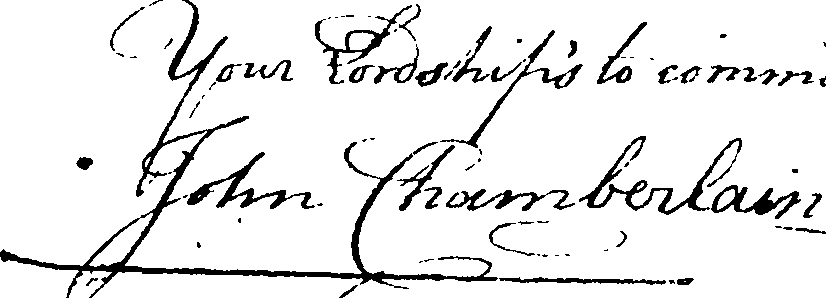 Your Lordship's to comm
John Chamberlain